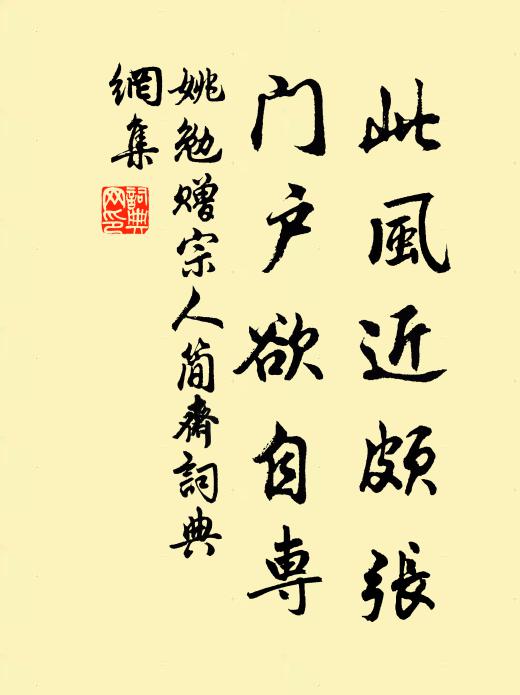 此風近頗張
门户欲自専
姚勉赠宗人简齋詞典
網集
詞典
网印